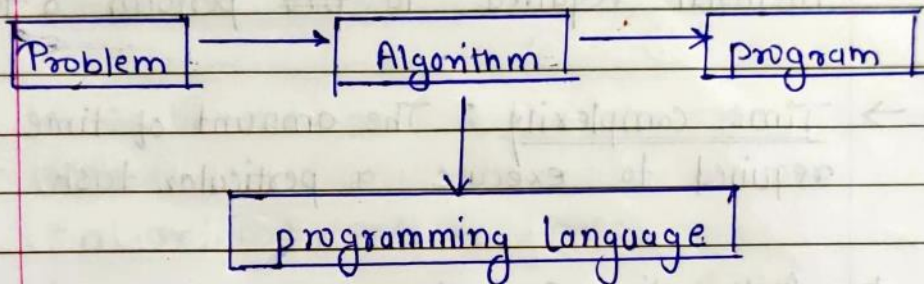 Problem Algorithm program
programming Language